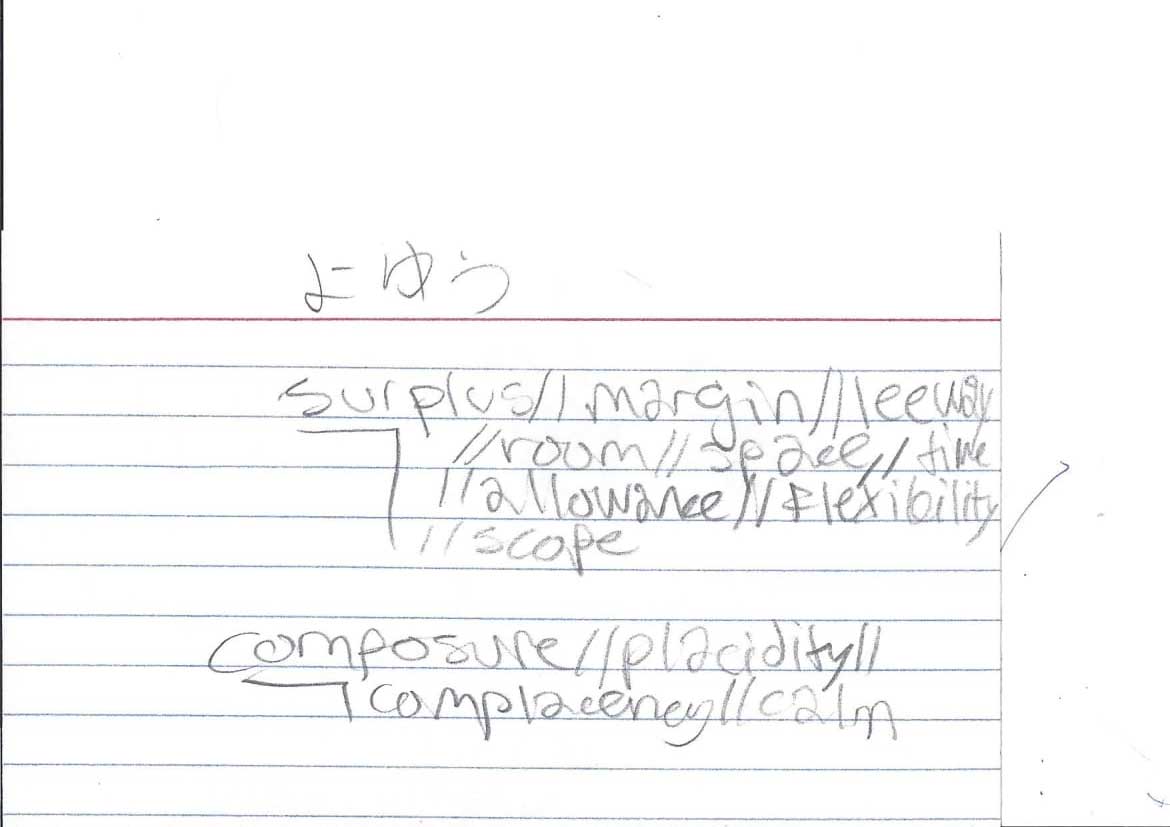 よゆう
surplus//margin//leeway
//room//space//time
//allowance//flexibility
//scope
composure//placidity//
complacency//calm